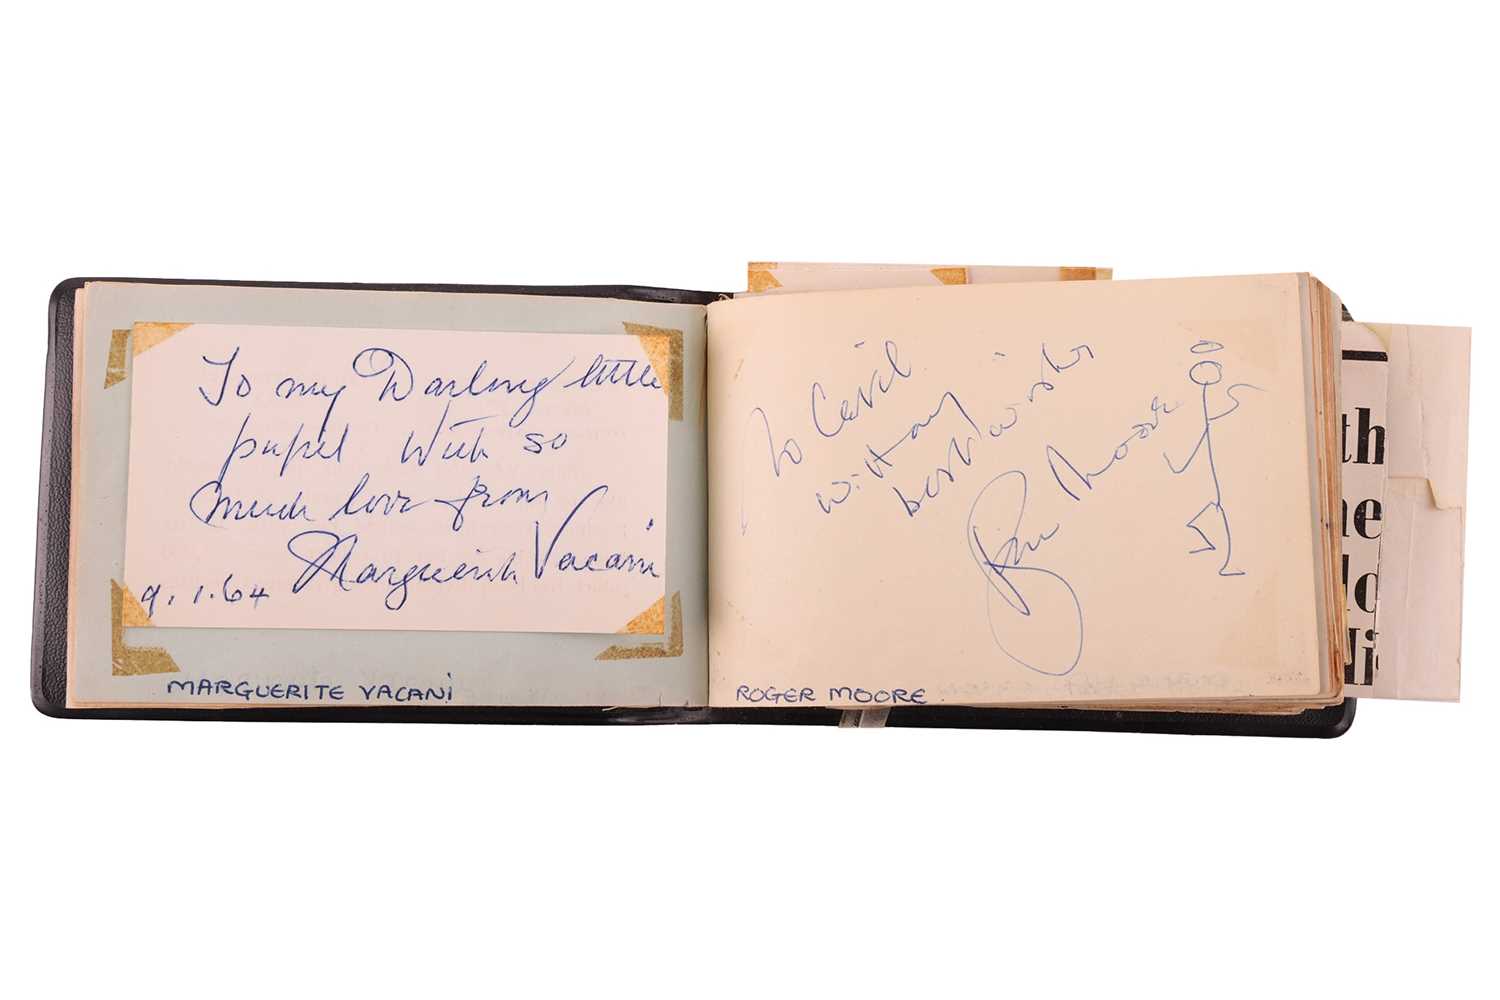 To my Darling little
pupil With so
much love from
Marguerite Vacani
9.1.64
MARGUERITE VACANI
To
with my
best wishes
Roger Moore
ROGER MOORE
th
he